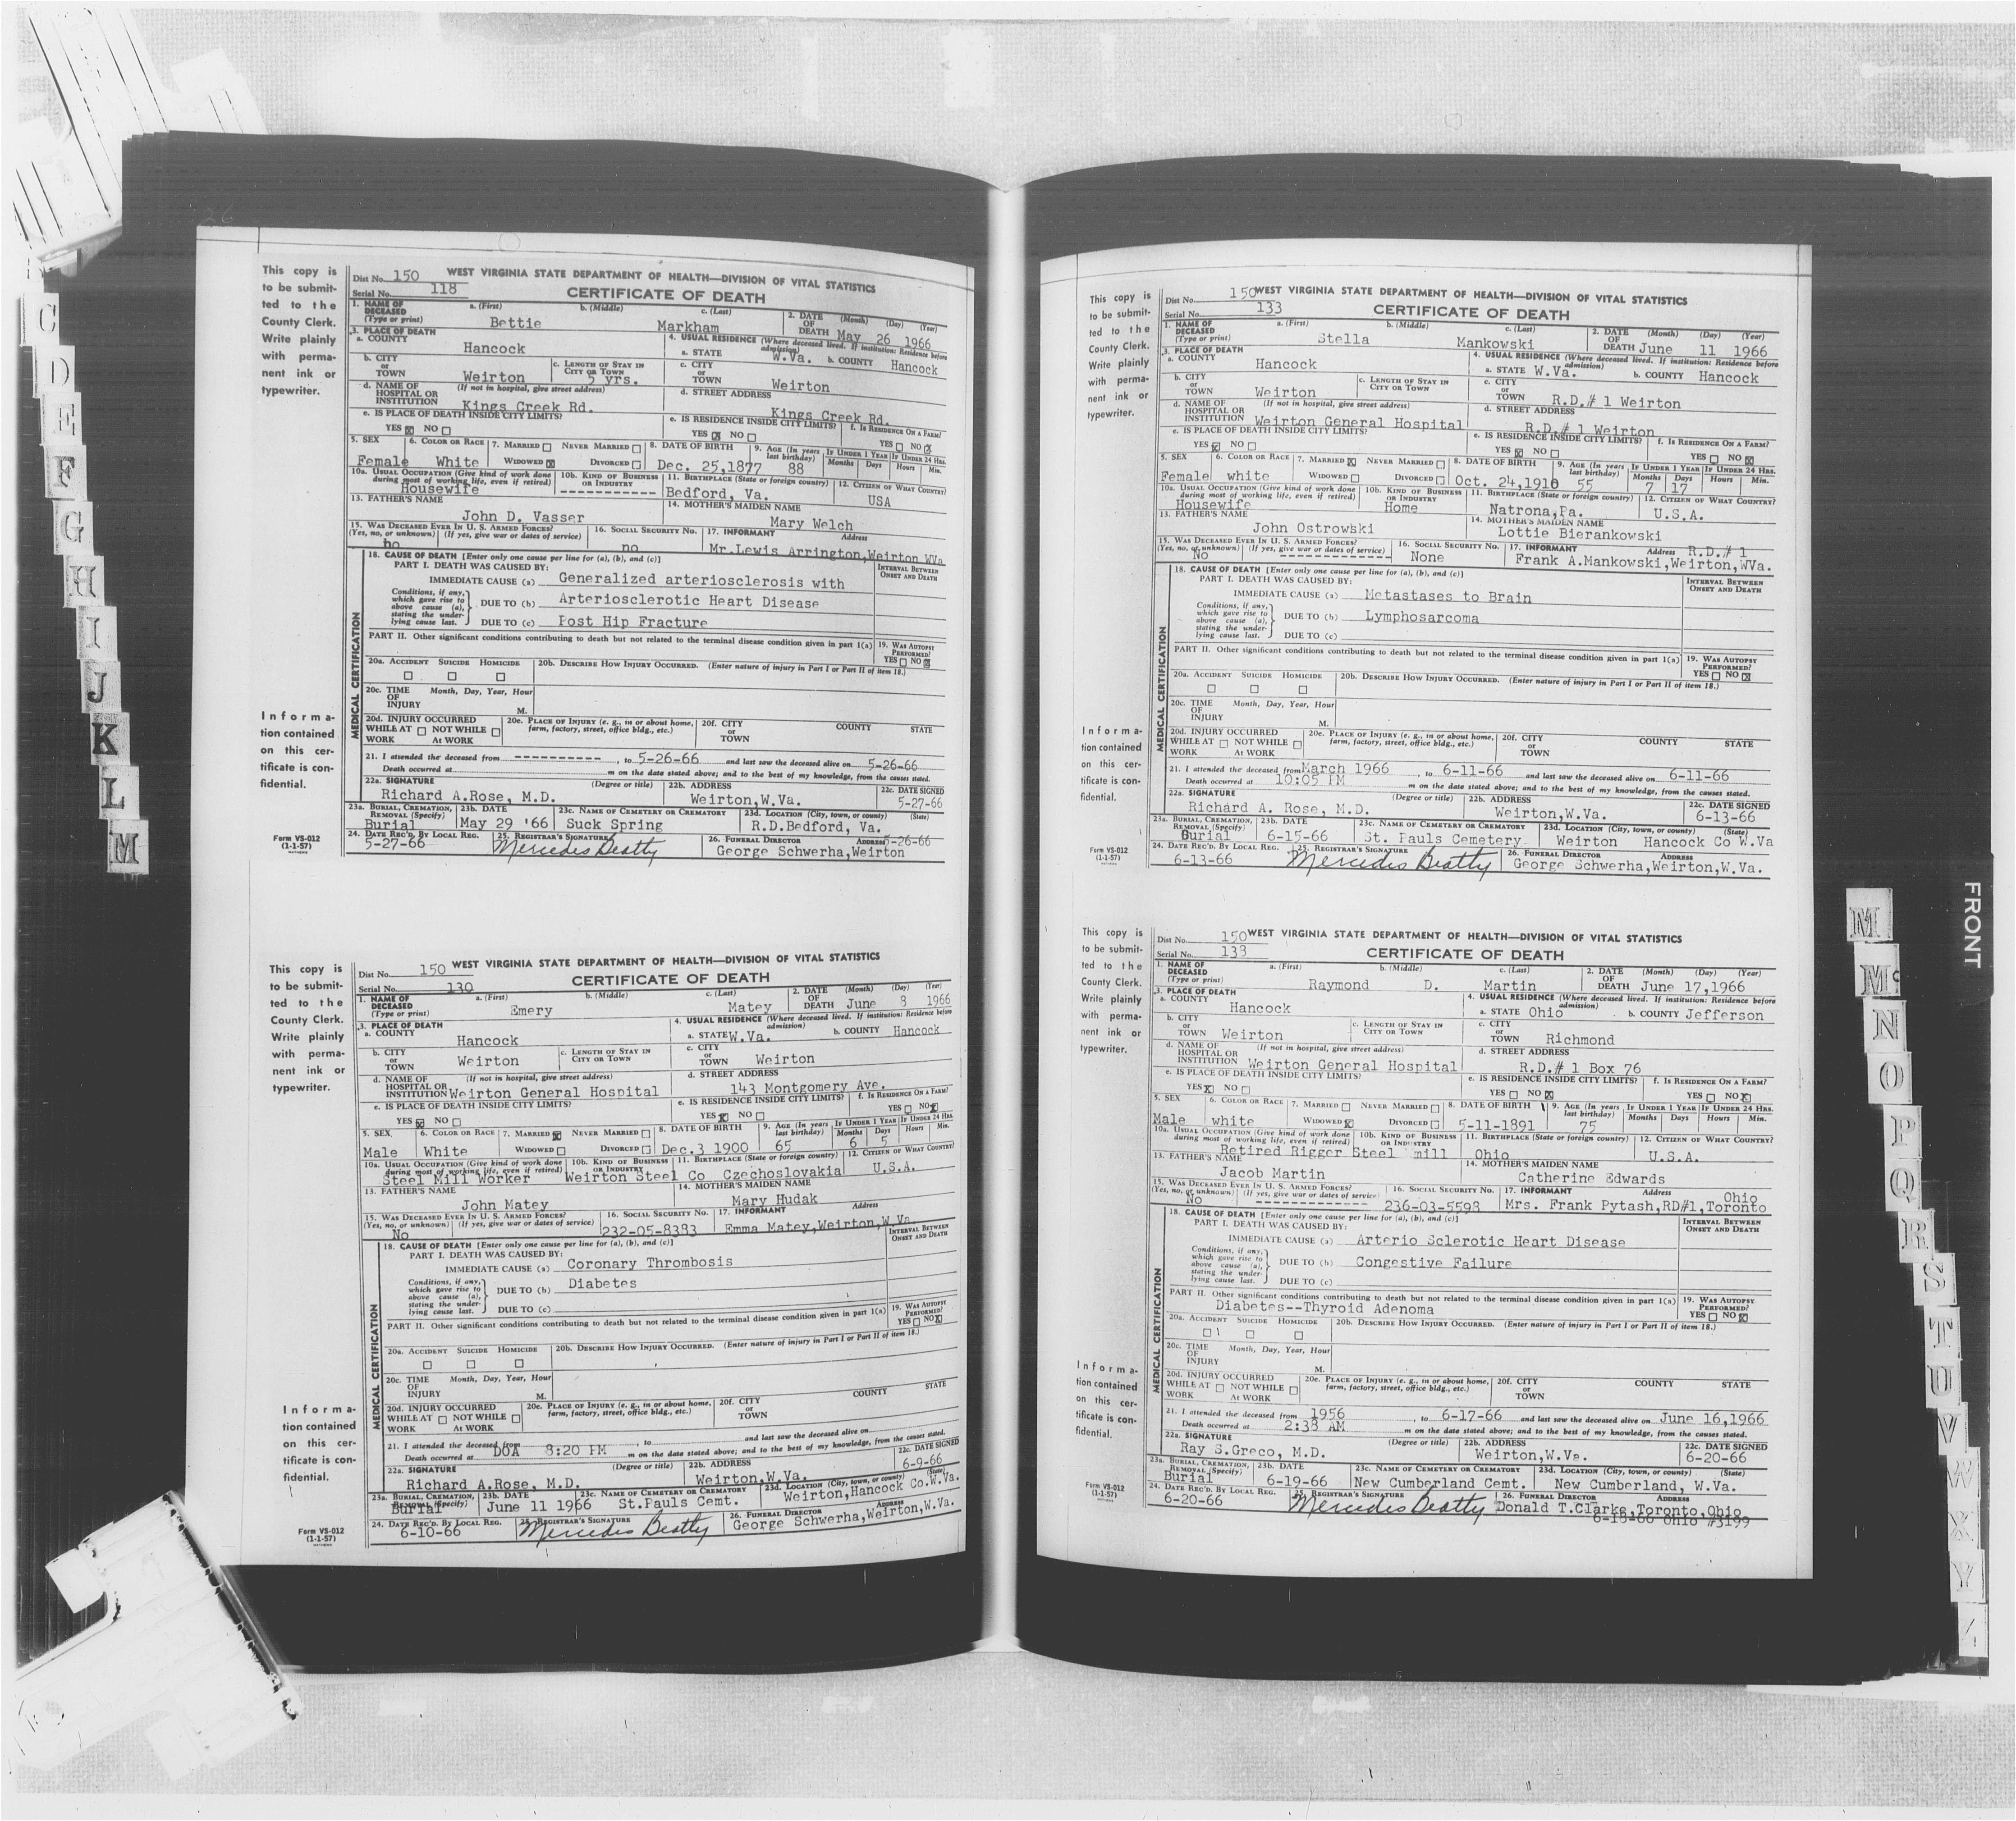 C
D
E
F
G
H
I
J
K
L
M
This copy is
to be submit-
ted to the
County Clerk.
Write plainly
with perma-
nent ink or
typewriter.
Informa-
tion contained
on this cer-
tificate is con-
fidential.
Form VS-012
(1-1-57)
Dist No. 150 WEST VIRGINIA STATE DEPARTMENT OF HEALTH—DIVISION OF VITAL STATISTICS
Serial No. 118 CERTIFICATE OF DEATH
1. NAME OF DECEASED (Type or print) a. (First) Bettie b. (Middle) c. (Last) Markham 2. DATE OF DEATH (Month) (Day) (Year) May 26 1966
3. PLACE OF DEATH a. COUNTY Hancock 4. USUAL RESIDENCE (Where deceased lived. If institution: Residence before admission) a. STATE W.Va. b. COUNTY Hancock
b. CITY or TOWN Weirton c. LENGTH OF STAY IN CITY OR TOWN 5 yrs. c. CITY or TOWN Weirton
d. NAME OF HOSPITAL OR INSTITUTION (If not in hospital, give street address) Kings Creek Rd. d. STREET ADDRESS Kings Creek Rd.
e. IS PLACE OF DEATH INSIDE CITY LIMITS? YES NO e. IS RESIDENCE INSIDE CITY LIMITS? YES NO f. IS RESIDENCE ON A FARM? YES NO
5. SEX Female 6. COLOR OR RACE White 7. MARRIED NEVER MARRIED WIDOWED DIVORCED 8. DATE OF BIRTH Dec. 25,1877 9. AGE (In years last birthday) 88 IF UNDER 1 YEAR Months Days IF UNDER 24 HRS. Hours Min.
10a. USUAL OCCUPATION (Give kind of work done during most of working life, even if retired) Housewife 10b. KIND OF BUSINESS OR INDUSTRY ----------- 11. BIRTHPLACE (State or foreign country) Bedford, Va. 12. CITIZEN OF WHAT COUNTRY? USA
13. FATHER'S NAME John D. Vasser 14. MOTHER'S MAIDEN NAME Mary Welch
15. WAS DECEASED EVER IN U. S. ARMED FORCES? (Yes, no, or unknown) (If yes, give war or dates of service) no 16. SOCIAL SECURITY NO. no 17. INFORMANT Address Mr.Lewis Arrington,Weirton WVa
MEDICAL CERTIFICATION
18. CAUSE OF DEATH [Enter only one cause per line for (a), (b), and (c)] INTERVAL BETWEEN ONSET AND DEATH
PART I. DEATH WAS CAUSED BY:
IMMEDIATE CAUSE (a) Generalized arteriosclerosis with
Conditions, if any, which gave rise to above cause (a), stating the underlying cause last. DUE TO (b) Arteriosclerotic Heart Disease
DUE TO (c) Post Hip Fracture
PART II. Other significant conditions contributing to death but not related to the terminal disease condition given in part 1(a) 19. WAS AUTOPSY PERFORMED? YES NO
20a. ACCIDENT SUICIDE HOMICIDE 20b. DESCRIBE HOW INJURY OCCURRED. (Enter nature of injury in Part I or Part II of item 18.)
20c. TIME OF INJURY Month, Day, Year, Hour M.
20d. INJURY OCCURRED WHILE AT WORK NOT WHILE AT WORK 20e. PLACE OF INJURY (e. g., in or about home, farm, factory, street, office bldg., etc.) 20f. CITY or TOWN COUNTY STATE
21. I attended the deceased from ---------- , to 5-26-66 and last saw the deceased alive on 5-26-66
Death occurred at m on the date stated above; and to the best of my knowledge, from the causes stated.
22a. SIGNATURE (Degree or title) Richard A.Rose, M.D. 22b. ADDRESS Weirton,W.Va. 22c. DATE SIGNED 5-27-66
23a. BURIAL, CREMATION, REMOVAL (Specify) Burial 23b. DATE May 29 '66 23c. NAME OF CEMETERY OR CREMATORY Suck Spring 23d. LOCATION (City, town, or county) (State) R.D.Bedford, Va.
24. DATE REC'D. BY LOCAL REG. 5-27-66 25. REGISTRAR'S SIGNATURE Mercedes Beatty 26. FUNERAL DIRECTOR ADDRESS 5-26-66 George Schwerha,Weirton
This copy is
to be submit-
ted to the
County Clerk.
Write plainly
with perma-
nent ink or
typewriter.
Informa-
tion contained
on this cer-
tificate is con-
fidential.
Form VS-012
(1-1-57)
Dist No. 150 WEST VIRGINIA STATE DEPARTMENT OF HEALTH—DIVISION OF VITAL STATISTICS
Serial No. 130 CERTIFICATE OF DEATH
1. NAME OF DECEASED (Type or print) a. (First) Emery b. (Middle) c. (Last) Matey 2. DATE OF DEATH (Month) (Day) (Year) June 8 1966
3. PLACE OF DEATH a. COUNTY Hancock 4. USUAL RESIDENCE (Where deceased lived. If institution: Residence before admission) a. STATE W.Va. b. COUNTY Hancock
b. CITY or TOWN Weirton c. LENGTH OF STAY IN CITY OR TOWN c. CITY or TOWN Weirton
d. NAME OF HOSPITAL OR INSTITUTION (If not in hospital, give street address) Weirton General Hospital d. STREET ADDRESS 143 Montgomery Ave.
e. IS PLACE OF DEATH INSIDE CITY LIMITS? YES NO e. IS RESIDENCE INSIDE CITY LIMITS? YES NO f. IS RESIDENCE ON A FARM? YES NO
5. SEX Male 6. COLOR OR RACE White 7. MARRIED NEVER MARRIED WIDOWED DIVORCED 8. DATE OF BIRTH Dec.3 1900 9. AGE (In years last birthday) 65 IF UNDER 1 YEAR Months 6 Days 5 IF UNDER 24 HRS. Hours Min.
10a. USUAL OCCUPATION (Give kind of work done during most of working life, even if retired) Steel Mill Worker 10b. KIND OF BUSINESS OR INDUSTRY Weirton Steel Co 11. BIRTHPLACE (State or foreign country) Czechoslovakia 12. CITIZEN OF WHAT COUNTRY? U.S.A.
13. FATHER'S NAME John Matey 14. MOTHER'S MAIDEN NAME Mary Hudak
15. WAS DECEASED EVER IN U. S. ARMED FORCES? (Yes, no, or unknown) (If yes, give war or dates of service) No 16. SOCIAL SECURITY NO. 232-05-8383 17. INFORMANT Address Emma Matey,Weirton,W Va.
MEDICAL CERTIFICATION
18. CAUSE OF DEATH [Enter only one cause per line for (a), (b), and (c)] INTERVAL BETWEEN ONSET AND DEATH
PART I. DEATH WAS CAUSED BY:
IMMEDIATE CAUSE (a) Coronary Thrombosis
Conditions, if any, which gave rise to above cause (a), stating the underlying cause last. DUE TO (b) Diabetes
DUE TO (c)
PART II. Other significant conditions contributing to death but not related to the terminal disease condition given in part 1(a) 19. WAS AUTOPSY PERFORMED? YES NO
20a. ACCIDENT SUICIDE HOMICIDE 20b. DESCRIBE HOW INJURY OCCURRED. (Enter nature of injury in Part I or Part II of item 18.)
20c. TIME OF INJURY Month, Day, Year, Hour M.
20d. INJURY OCCURRED WHILE AT WORK NOT WHILE AT WORK 20e. PLACE OF INJURY (e. g., in or about home, farm, factory, street, office bldg., etc.) 20f. CITY or TOWN COUNTY STATE
21. I attended the deceased from , to and last saw the deceased alive on
Death occurred at DOA 8:20 PM m on the date stated above; and to the best of my knowledge, from the causes stated.
22a. SIGNATURE (Degree or title) Richard A.Rose, M.D. 22b. ADDRESS Weirton,W.Va. 22c. DATE SIGNED 6-9-66
23a. BURIAL, CREMATION, REMOVAL (Specify) Burial 23b. DATE June 11 1966 23c. NAME OF CEMETERY OR CREMATORY St.Pauls Cemt. 23d. LOCATION (City, town, or county) (State) Weirton,Hancock Co.W.Va.
24. DATE REC'D. BY LOCAL REG. 6-10-66 25. REGISTRAR'S SIGNATURE Mercedes Beatty 26. FUNERAL DIRECTOR ADDRESS George Schwerha,Weirton,W.Va.
This copy is
to be submit-
ted to the
County Clerk.
Write plainly
with perma-
nent ink or
typewriter.
Informa-
tion contained
on this cer-
tificate is con-
fidential.
Form VS-012
(1-1-57)
Dist No. 150 WEST VIRGINIA STATE DEPARTMENT OF HEALTH—DIVISION OF VITAL STATISTICS
Serial No. 133 CERTIFICATE OF DEATH
1. NAME OF DECEASED (Type or print) a. (First) Stella b. (Middle) c. (Last) Mankowski 2. DATE OF DEATH (Month) (Day) (Year) June 11 1966
3. PLACE OF DEATH a. COUNTY Hancock 4. USUAL RESIDENCE (Where deceased lived. If institution: Residence before admission) a. STATE W.Va. b. COUNTY Hancock
b. CITY or TOWN Weirton c. LENGTH OF STAY IN CITY OR TOWN c. CITY or TOWN R.D.# 1 Weirton
d. NAME OF HOSPITAL OR INSTITUTION (If not in hospital, give street address) Weirton General Hospital d. STREET ADDRESS R.D.# 1 Weirton
e. IS PLACE OF DEATH INSIDE CITY LIMITS? YES NO e. IS RESIDENCE INSIDE CITY LIMITS? YES NO f. IS RESIDENCE ON A FARM? YES NO
5. SEX Female 6. COLOR OR RACE white 7. MARRIED NEVER MARRIED WIDOWED DIVORCED 8. DATE OF BIRTH Oct. 24,1910 9. AGE (In years last birthday) 55 IF UNDER 1 YEAR Months 7 Days 17 IF UNDER 24 HRS. Hours Min.
10a. USUAL OCCUPATION (Give kind of work done during most of working life, even if retired) Housewife 10b. KIND OF BUSINESS OR INDUSTRY Home 11. BIRTHPLACE (State or foreign country) Natrona,Pa. 12. CITIZEN OF WHAT COUNTRY? U.S.A.
13. FATHER'S NAME John Ostrowski 14. MOTHER'S MAIDEN NAME Lottie Bierankowski
15. WAS DECEASED EVER IN U. S. ARMED FORCES? (Yes, no, or unknown) (If yes, give war or dates of service) No ------------- 16. SOCIAL SECURITY NO. None 17. INFORMANT Address R.D.# 1 Frank A.Mankowski,Weirton,WVa.
MEDICAL CERTIFICATION
18. CAUSE OF DEATH [Enter only one cause per line for (a), (b), and (c)] INTERVAL BETWEEN ONSET AND DEATH
PART I. DEATH WAS CAUSED BY:
IMMEDIATE CAUSE (a) Metastases to Brain
Conditions, if any, which gave rise to above cause (a), stating the underlying cause last. DUE TO (b) Lymphosarcoma
DUE TO (c)
PART II. Other significant conditions contributing to death but not related to the terminal disease condition given in part 1(a) 19. WAS AUTOPSY PERFORMED? YES NO
20a. ACCIDENT SUICIDE HOMICIDE 20b. DESCRIBE HOW INJURY OCCURRED. (Enter nature of injury in Part I or Part II of item 18.)
20c. TIME OF INJURY Month, Day, Year, Hour M.
20d. INJURY OCCURRED WHILE AT WORK NOT WHILE AT WORK 20e. PLACE OF INJURY (e. g., in or about home, farm, factory, street, office bldg., etc.) 20f. CITY or TOWN COUNTY STATE
21. I attended the deceased from March 1966 , to 6-11-66 and last saw the deceased alive on 6-11-66
Death occurred at 10:05 PM m on the date stated above; and to the best of my knowledge, from the causes stated.
22a. SIGNATURE (Degree or title) Richard A. Rose, M.D. 22b. ADDRESS Weirton,W.Va. 22c. DATE SIGNED 6-13-66
23a. BURIAL, CREMATION, REMOVAL (Specify) Burial 23b. DATE 6-15-66 23c. NAME OF CEMETERY OR CREMATORY St. Pauls Cemetery 23d. LOCATION (City, town, or county) (State) Weirton Hancock Co W.Va
24. DATE REC'D. BY LOCAL REG. 6-13-66 25. REGISTRAR'S SIGNATURE Mercedes Beatty 26. FUNERAL DIRECTOR ADDRESS George Schwerha,Weirton,W.Va.
This copy is
to be submit-
ted to the
County Clerk.
Write plainly
with perma-
nent ink or
typewriter.
Informa-
tion contained
on this cer-
tificate is con-
fidential.
Form VS-012
(1-1-57)
Dist No. 150 WEST VIRGINIA STATE DEPARTMENT OF HEALTH—DIVISION OF VITAL STATISTICS
Serial No. 138 CERTIFICATE OF DEATH
1. NAME OF DECEASED (Type or print) a. (First) Raymond b. (Middle) D. c. (Last) Martin 2. DATE OF DEATH (Month) (Day) (Year) June 17,1966
3. PLACE OF DEATH a. COUNTY Hancock 4. USUAL RESIDENCE (Where deceased lived. If institution: Residence before admission) a. STATE Ohio b. COUNTY Jefferson
b. CITY or TOWN Weirton c. LENGTH OF STAY IN CITY OR TOWN c. CITY or TOWN Richmond
d. NAME OF HOSPITAL OR INSTITUTION (If not in hospital, give street address) Weirton General Hospital d. STREET ADDRESS R.D.# 1 Box 76
e. IS PLACE OF DEATH INSIDE CITY LIMITS? YES NO e. IS RESIDENCE INSIDE CITY LIMITS? YES NO f. IS RESIDENCE ON A FARM? YES NO
5. SEX Male 6. COLOR OR RACE white 7. MARRIED NEVER MARRIED WIDOWED DIVORCED 8. DATE OF BIRTH 5-11-1891 9. AGE (In years last birthday) 75 IF UNDER 1 YEAR Months Days IF UNDER 24 HRS. Hours Min.
10a. USUAL OCCUPATION (Give kind of work done during most of working life, even if retired) Retired Rigger 10b. KIND OF BUSINESS OR INDUSTRY Steel mill 11. BIRTHPLACE (State or foreign country) Ohio 12. CITIZEN OF WHAT COUNTRY? U.S.A.
13. FATHER'S NAME Jacob Martin 14. MOTHER'S MAIDEN NAME Catherine Edwards
15. WAS DECEASED EVER IN U. S. ARMED FORCES? (Yes, no, or unknown) (If yes, give war or dates of service) No ------------- 16. SOCIAL SECURITY NO. 236-03-5598 17. INFORMANT Address Ohio Mrs. Frank Pytash,RD#1,Toronto
MEDICAL CERTIFICATION
18. CAUSE OF DEATH [Enter only one cause per line for (a), (b), and (c)] INTERVAL BETWEEN ONSET AND DEATH
PART I. DEATH WAS CAUSED BY:
IMMEDIATE CAUSE (a) Arterio Sclerotic Heart Disease
Conditions, if any, which gave rise to above cause (a), stating the underlying cause last. DUE TO (b) Congestive Failure
DUE TO (c)
PART II. Other significant conditions contributing to death but not related to the terminal disease condition given in part 1(a) 19. WAS AUTOPSY PERFORMED? YES NO
Diabetes--Thyroid Adenoma
20a. ACCIDENT SUICIDE HOMICIDE 20b. DESCRIBE HOW INJURY OCCURRED. (Enter nature of injury in Part I or Part II of item 18.)
20c. TIME OF INJURY Month, Day, Year, Hour M.
20d. INJURY OCCURRED WHILE AT WORK NOT WHILE AT WORK 20e. PLACE OF INJURY (e. g., in or about home, farm, factory, street, office bldg., etc.) 20f. CITY or TOWN COUNTY STATE
21. I attended the deceased from 1956 , to 6-17-66 and last saw the deceased alive on June 16,1966
Death occurred at 2:38 AM m on the date stated above; and to the best of my knowledge, from the causes stated.
22a. SIGNATURE (Degree or title) Ray S.Greco, M.D. 22b. ADDRESS Weirton,W.Va. 22c. DATE SIGNED 6-20-66
23a. BURIAL, CREMATION, REMOVAL (Specify) Burial 23b. DATE 6-19-66 23c. NAME OF CEMETERY OR CREMATORY New Cumberland Cemt. 23d. LOCATION (City, town, or county) (State) New Cumberland, W.Va.
24. DATE REC'D. BY LOCAL REG. 6-20-66 25. REGISTRAR'S SIGNATURE Mercedes Beatty 26. FUNERAL DIRECTOR ADDRESS Donald T.Clarke,Toronto,Ohio
6-18-66 Ohio #3199
FRONT
M
Mc
N
O
P
Q
R
S
T
U
V
W
X
Y
Z